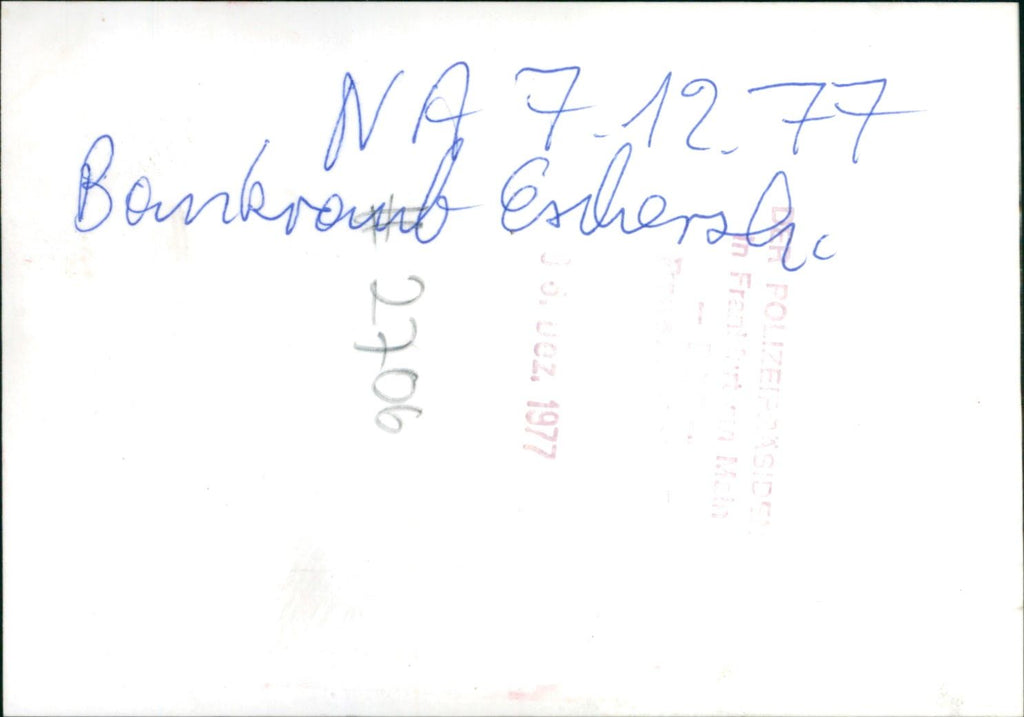 NA 7.12.77
Bankraub Eschersh.
# 2706
06. Dez. 1977
DER POLIZEIPRÄSIDENT
in Frankfurt am Main